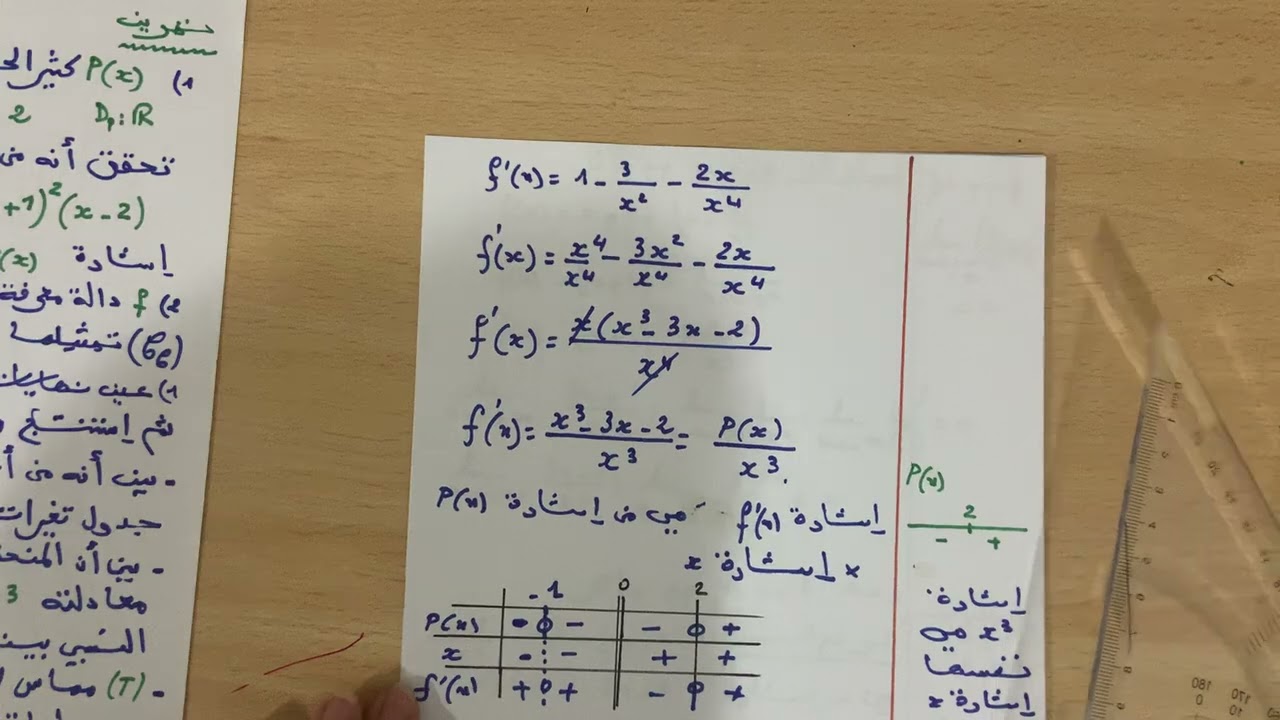 تمرين
1) P(x) كثير
D_P: ℝ 2
تحقق أنه من
+1)²(x-2)
إشارة (x)
2) f دالة معرفة
(C_f) تمثيلها
1) عين نهايات
ثم إستنتج
- بين أنه من أ
جدول تغيرات
- بين أن المنحنى
معادلته 3
النسبي
- (T) مماس
f'(x) = 1 - 3/x² - 2x/x⁴
f'(x) = x⁴/x⁴ - 3x²/x⁴ - 2x/x⁴
f'(x) = x(x³ - 3x - 2)/x⁴
f'(x) = x³ - 3x - 2/x³ = P(x)/x³.
إشارة f'(x) هي من إشارة P(x)
x إشارة x
-1 0 2
P(x) - 0 - - 0 +
x - - + +
f'(x) + 0 + - 0 +
P(x)
2
- +
إشارة
x³ هي
نفسها
إشارة x
180 170
0 10